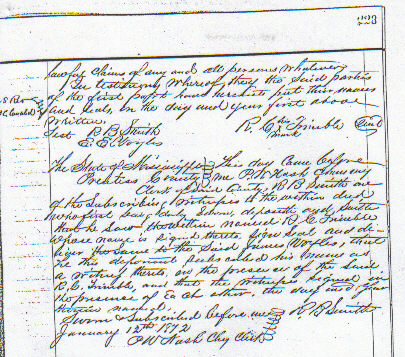 223
lawful claims of any and all persons whatever
In testimony Whereof, they the said parties
of the first part have hereunto put their names
and Seals, on the day and year first above
written
Test R B Smith R. C. his Trimble Seal
mark
The State of Mississippi This day Came before
Prentiss County me P W Nash Chancery
Clerk of said County, R B Smith one
of the subscribing Witnesses to the within deed
who first being duly Sworn, deposeth and
that he saw the within named R. C. Trimble
whose name is signed thereto sign seal and de-
liver the same to the said James Voyles, that
he this deponent subscribed his name as
a witness thereto, in the presence of the said
R. C. Trimble, and that the witnesses signed in
the presence of each other, the day and year
therein named. R B Smith
Sworn & Subscribed before me
January 12th 1872
P W Nash Chy Clerk